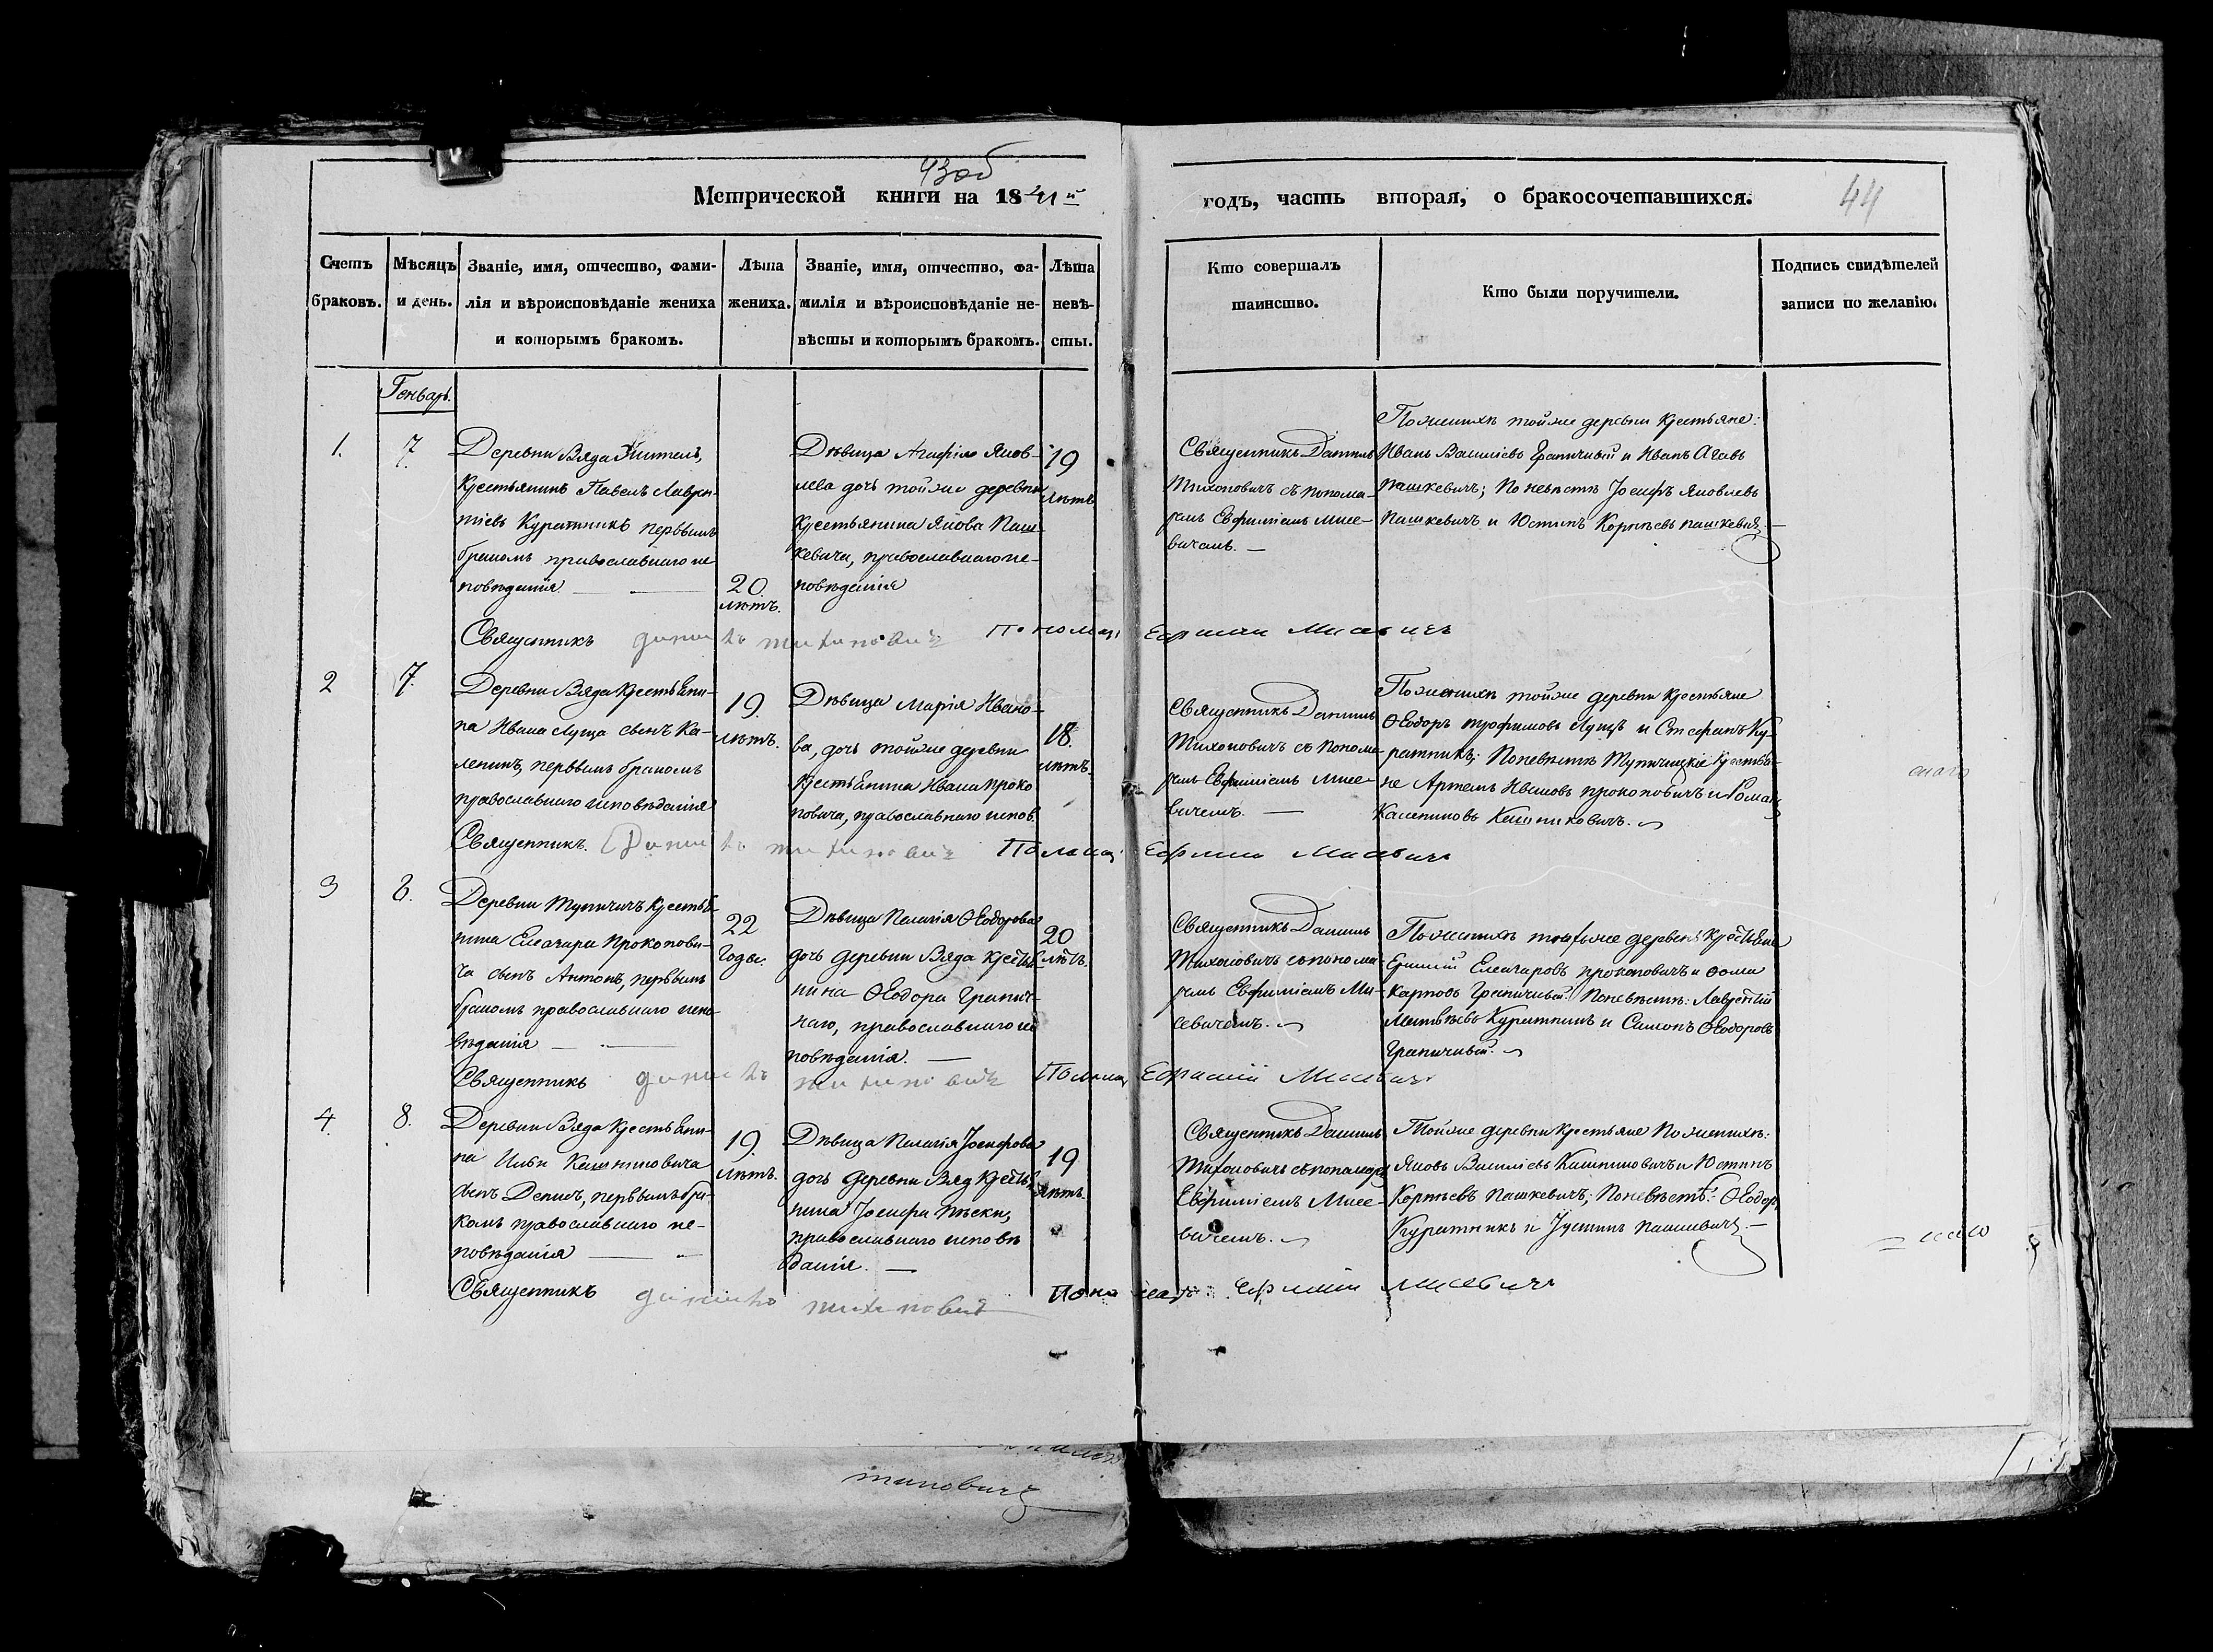 43об
Метрической книги на 1841й
годъ, часть вторая, о бракосочетавшихся.
44
Счетъ браковъ.
Мѣсяцъ и день.
Званіе, имя, отчество, фами-
лія и вѣроисповѣданіе жениха
и которымъ бракомъ.
Лѣта
жениха.
Званіе, имя, отчество, фа-
милія и вѣроисповѣданіе не-
вѣсты и которымъ бракомъ.
Лѣта
невѣ-
сты.
Кто совершалъ
таинство.
Кто были поручители.
Подпись свидѣтелей
записи по желанію.
Генварь.
1.
7.
Деревни Вяда Житель,
Крестьянинъ Павелъ Лаврен-
тіевъ Куратникъ первымъ
бракомъ православнаго ис
повѣданія
20
лѣтъ.
Дѣвица Агафія Яков-
лева дочь тойже деревни
Крестьянина Якова Паш-
кевича, православнаго ис-
повѣданія
19
лѣтъ
Священникъ Даніилъ
Тихоновичъ съ понома-
ремъ Евфиміемъ Мисе-
вичемъ. —
По женихѣ тойже деревни Крестьяне:
Иванъ Васильевъ Граничный и Иванъ
Пашкевичъ; По невѣстѣ Іосифъ Яковлевъ
Пашкевичъ и Юстинъ Корнѣевъ пашкевич
Священникъ данило тихановичъ Пономар Ефимии Мисевичъ
2
7.
Деревни Вяда Крестьяни-
на Ивана Лупца сынъ Ка-
ленинъ, первымъ бракомъ
православнаго исповѣданія
19.
лѣтъ.
Дѣвица Марія Ивано-
ва, дочь тойже деревни
Крестьянина Ивана проко
повича, православнаго испов.
18.
лѣтъ.
Священникъ Даніилъ
Тихоновичъ съ понома-
ремъ Евфиміемъ Мисе-
вичемъ. —
По женихѣ тойже деревни Крестьяне
Ѳеодоръ трофимовъ Лупцъ и Стефанъ Ку-
ратникъ; По невѣстѣ Тупичицкіе Крестья-
не Артемъ Ивановъ прокоповичъ и Роман
Каленниковъ Кашниковичъ.
Священникъ. Данило тихановичъ Пономар Ефимии Мисевичъ
3
8.
Деревни Тупичичъ Крестья-
нина Елеазара Прокопови-
ча сынъ Антонъ, первымъ
бракомъ православнаго испо
вѣданія
22
Года.
Дѣвица Пелагія Ѳеодорова
дочь деревни Вяда Крестья-
нина Ѳеодора Гранич-
наго, православнаго ис
повѣданія. —
20
лѣтъ.
Священникъ Даніилъ
Тихоновичъ съ понома-
ремъ Евфиміемъ Ми-
севичемъ.
По женихѣ деревень Крестьяне
Елеазаровъ прокоповичъ и Ѳома
Карповъ Граничный. По невѣстѣ: Лаврентій
Матвѣевъ Куратникъ и Самсонъ Ѳеодоровъ
Граничный.
Священникъ данило тихановичъ Пономар Ефимии Мисевичъ
4.
8.
Деревни Вяда Крестьяни-
на Ильи Кашниковича
сынъ Денисъ, первымъ бра-
комъ православнаго ис-
повѣданія
19.
лѣтъ.
Дѣвица Пелагія Іосифова
дочь деревни Вяд Крестья
нина Іосифа Пѣски,
православнаго исповѣ
данія. —
19
лѣтъ.
Священникъ Даніилъ
Тихоновичъ съ пономаре
Евфиміемъ Мисе-
вичемъ.
Тойже деревни Крестьяне По женихѣ:
Яковъ Васильевъ Кашниковичъ и Юстинъ
Корнѣевъ Пашкевичъ; По невѣстѣ: Ѳеодор
Куратникъ и Іустинъ Пашкевич. —
Священникъ данило тихановичъ Пономаръ Ефимии Мисевичъ
тиновичъ